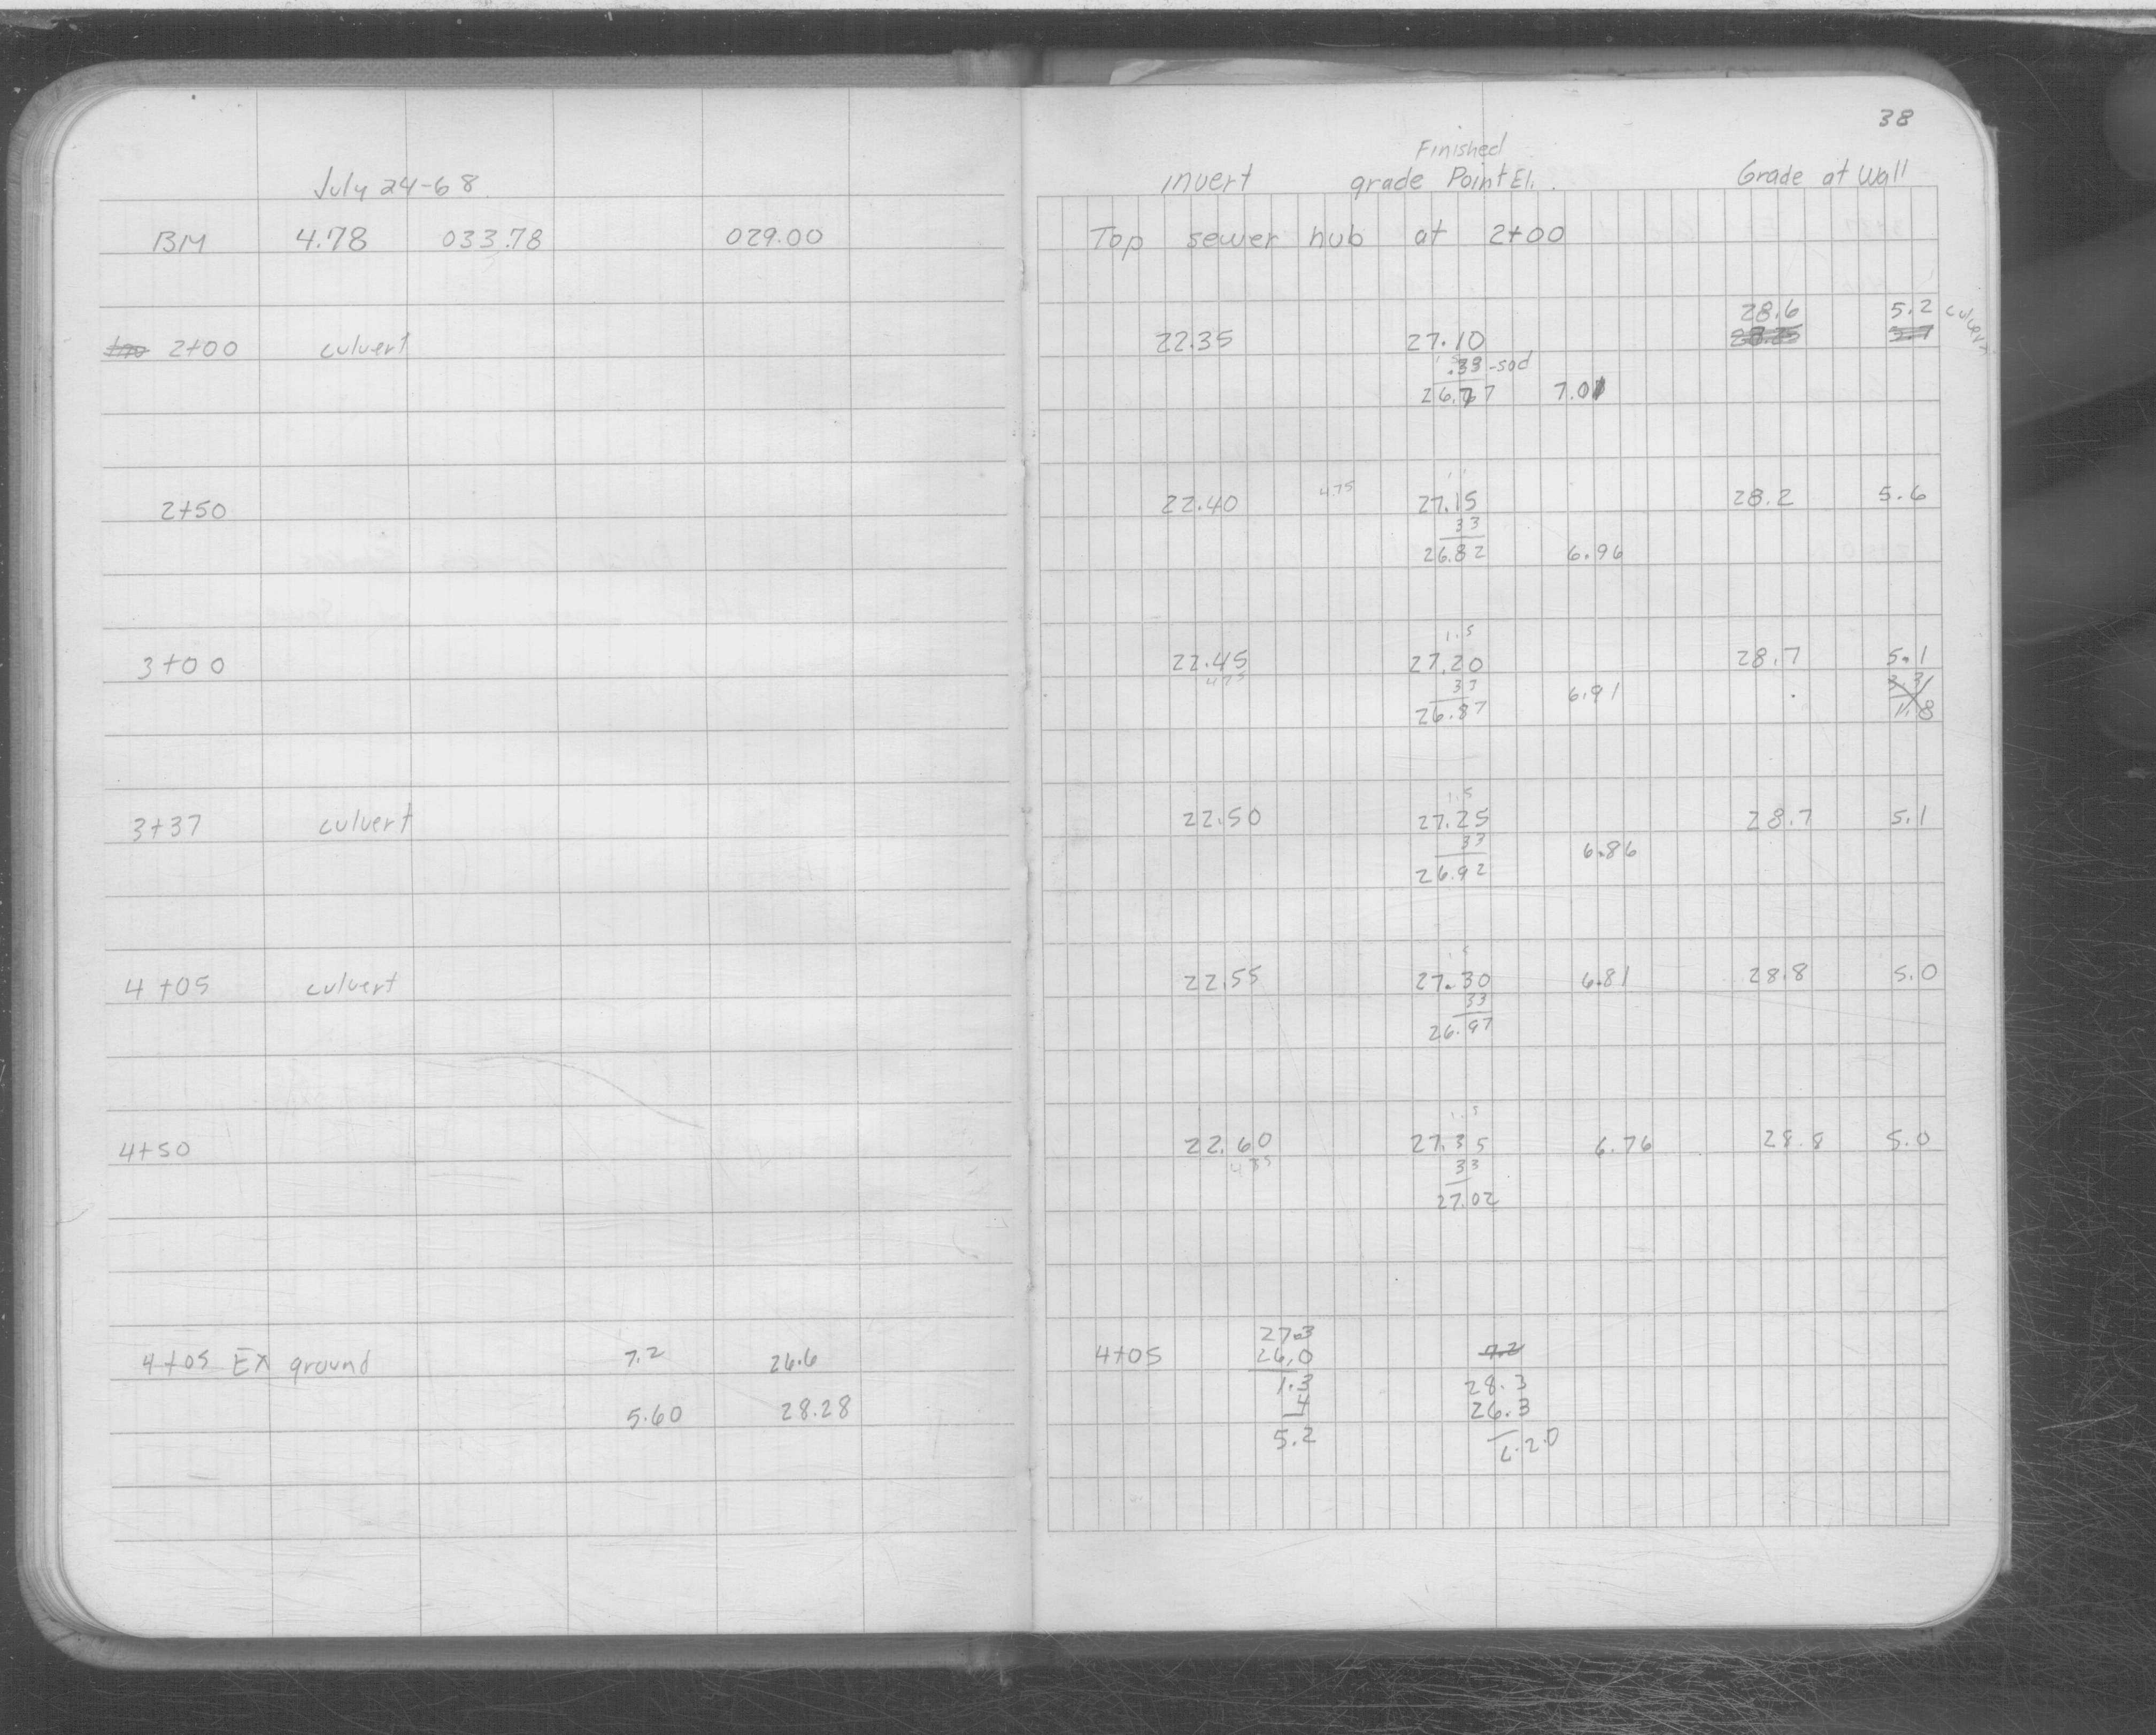 38
July 24-68
BM 4.78 033.78 029.00
2+00 culvert
2+50
3+00
3+37 culvert
4+05 culvert
4+50
4+05 Ex ground 7.2 26.6
5.60 28.28
Finished
invert grade Point El. Grade at Wall
Top sewer hub at 2+00
28.6 5.2 culvert
22.35 27.10
.33 -sod
26.77 7.01
22.40 4.75 27.15 28.2 5.6
33
26.82 6.96
1.5
22.45 27.20 28.7 5.1
4.75 33 6.91
26.87
1.5
22.50 27.25 28.7 5.1
33 6.86
26.92
22.55 27.30 6.81 28.8 5.0
33
26.97
1.5
22.60 27.35 6.76 28.8 5.0
33
27.02
27.3
4+05 26.0 7.2
1.3 28.3
4 26.3
5.2 2.0